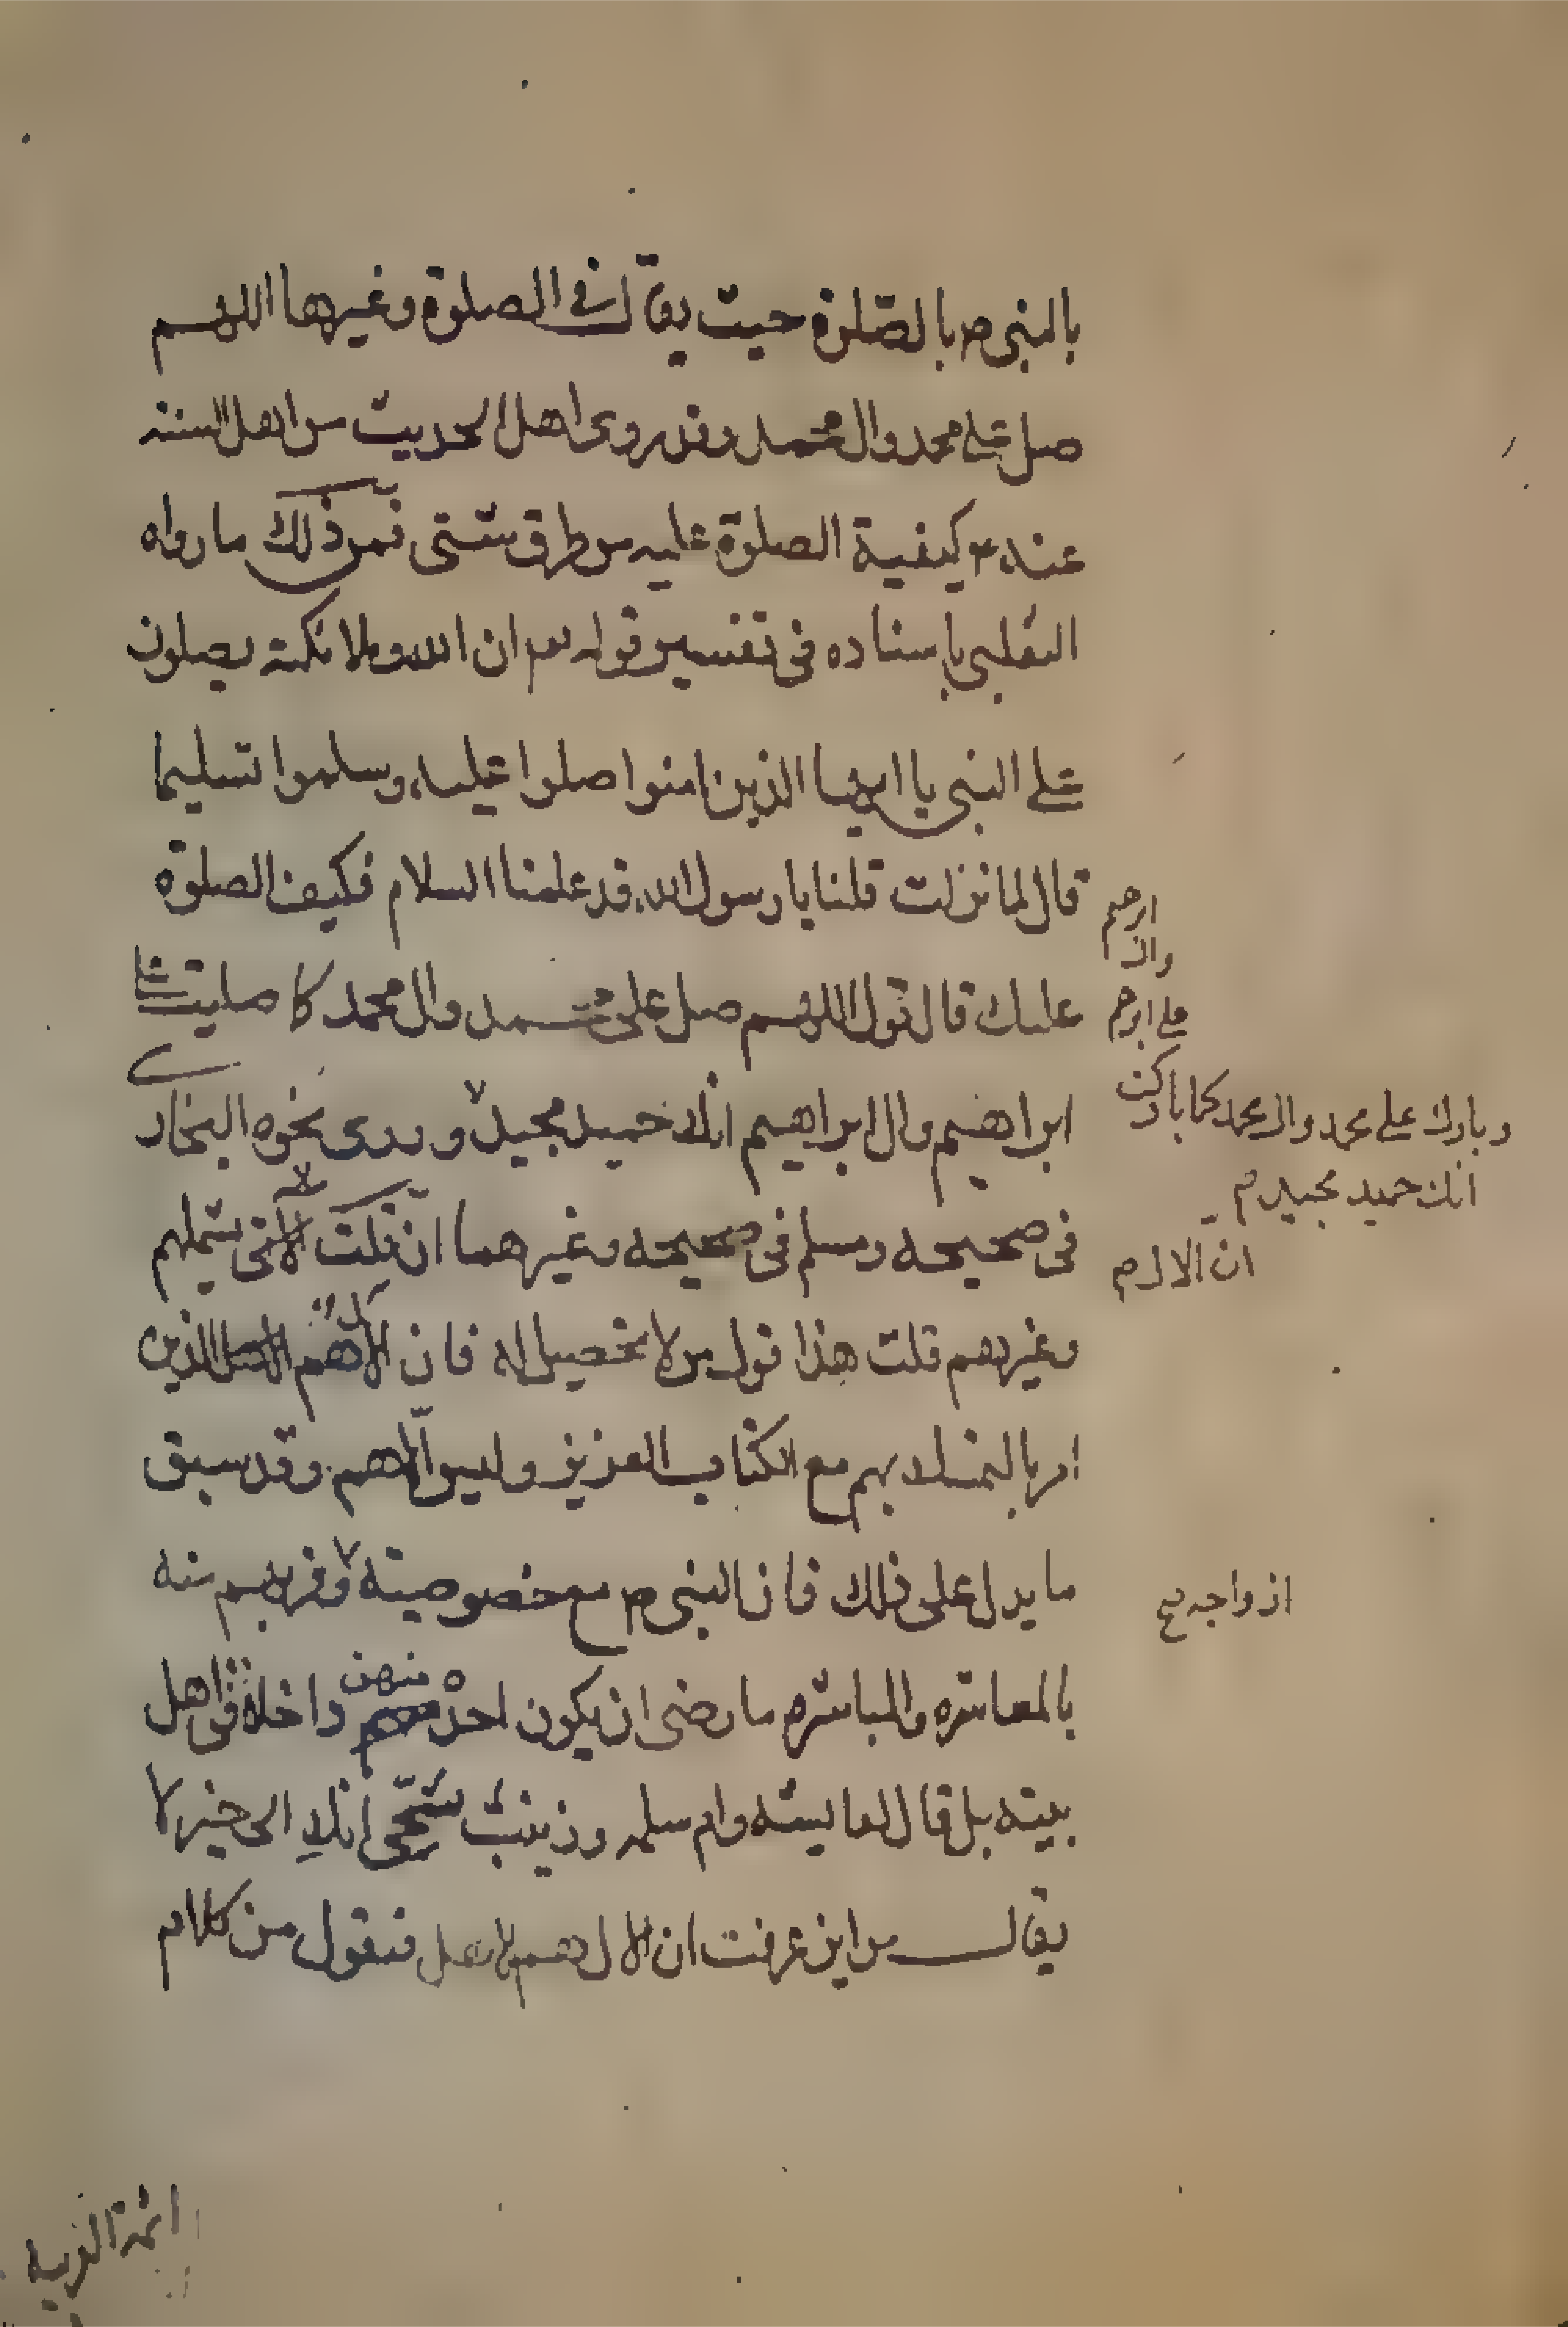 بالنبي ص بالصّلوة حيث يقال في الصلوة وغيرها اللهم
صل على محمد وال محمد وقد روى اهل الحديث من اهل السنه
عندهم كيفية الصلوة عليه من طرق شتى فمن ذلك ما رواه
الثعلبي باسناده في تفسير قوله تع ان الله وملائكته يصلون
على النبي يا ايها الذين امنوا صلوا عليه وسلموا تسليما
قال لما نزلت قلنا يا رسول الله قد علمنا السلام فكيف الصلوة
عليك قال قول اللهم صل على محمد وال محمد كما صليت على
ابراهيم وال ابراهيم انك حميد مجيد و نحوه البخاري
في صحيحه ومسلم في صحيحه وغيرهما ان قلت يشملهم
وغيرهم قلت هذا قول من لا تحصيل له فان الذين
امر بالتمسك بهم مع الكتاب العزيز وليس الا هم وقد سبق
ما يدل على ذلك فان النبي ص مع خصوصيته وقربهم منه
بالمعاشره والمباشره ما رضى ان يكون احده منهن داخلة في اهل
بيته بل قال لعايشه وام سلمه وزينب تنحّي انك الى خير لا
يقال من اين عرفت ان الال هم فنقول من كلام
على ابرهم
وبارك على محمد وال محمد كما باركت
انك حميد مجيد م
ازواجه صح
ائمة